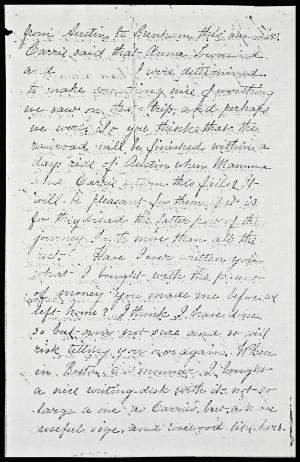 from Austin to Brenham this summer.
Carrie said that Anna Townsend
and I were determined
to make something nice of everything
we saw on the trip, and perhaps
we were. Do you think that the
railroad will be finished within a
days ride of Austin when Mamma
and Carrie return this fall? It
will be pleasant for them if it is
for they dread the latter part of the
journey more than all the
rest. Have I ever written you
what I bought with the
of money you made me before we
left home? I think I have done
so but am not sure and so will
risk telling you over again. When
in Boston this summer I bought
a nice writing desk with it, not so
large a one as Carrie's, but an
useful size, and like hers.